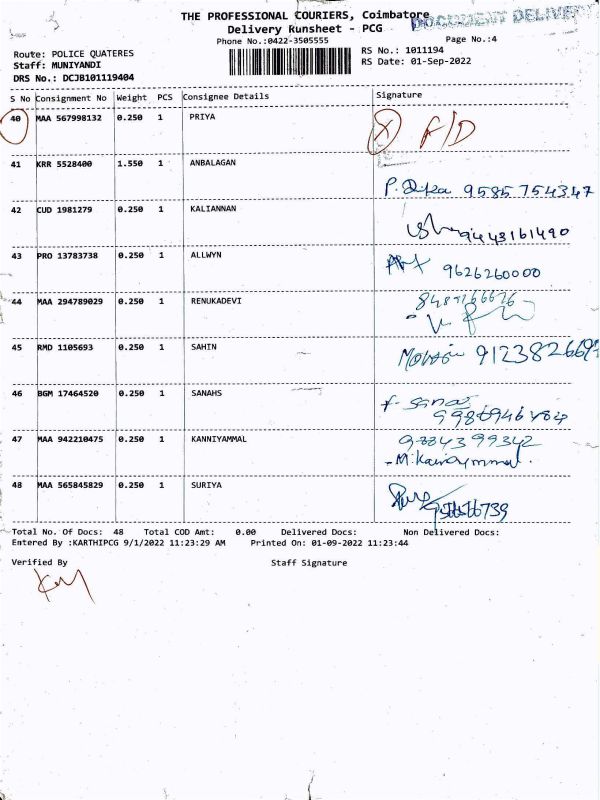 THE PROFESSIONAL COURIERS, Coimbatore
DOCUMENT DELIVE
Delivery Runsheet - PCG
Phone No.:0422-3505555
Page No.:4
Route: POLICE QUATERES
RS No.: 1011194
Staff: MUNIYANDI
RS Date: 01-Sep-2022
DRS No.: DCJB101119404
S No Consignment No Weight PCS Consignee Details Signature
40 MAA 567998132 0.250 1 PRIYA F/D
41 KRR 5528400 1.550 1 ANBALAGAN
9585754347
42 CUD 1981279 0.250 1 KALIANNAN
9443161490
43 PRO 13783738 0.250 1 ALLWYN
9626260000
44 MAA 294789029 0.250 1 RENUKADEVI
45 RMD 1105693 0.250 1 SAHIN
46 BGM 17464520 0.250 1 SANAHS
47 MAA 942210475 0.250 1 KANNIYAMMAL 9884399342
48 MAA 565845829 0.250 1 SURIYA
Total No. Of Docs: 48 Total COD Amt: 0.00 Delivered Docs: Non Delivered Docs:
Entered By :KARTHIPCG 9/1/2022 11:23:29 AM Printed On: 01-09-2022 11:23:44
Verified By Staff Signature